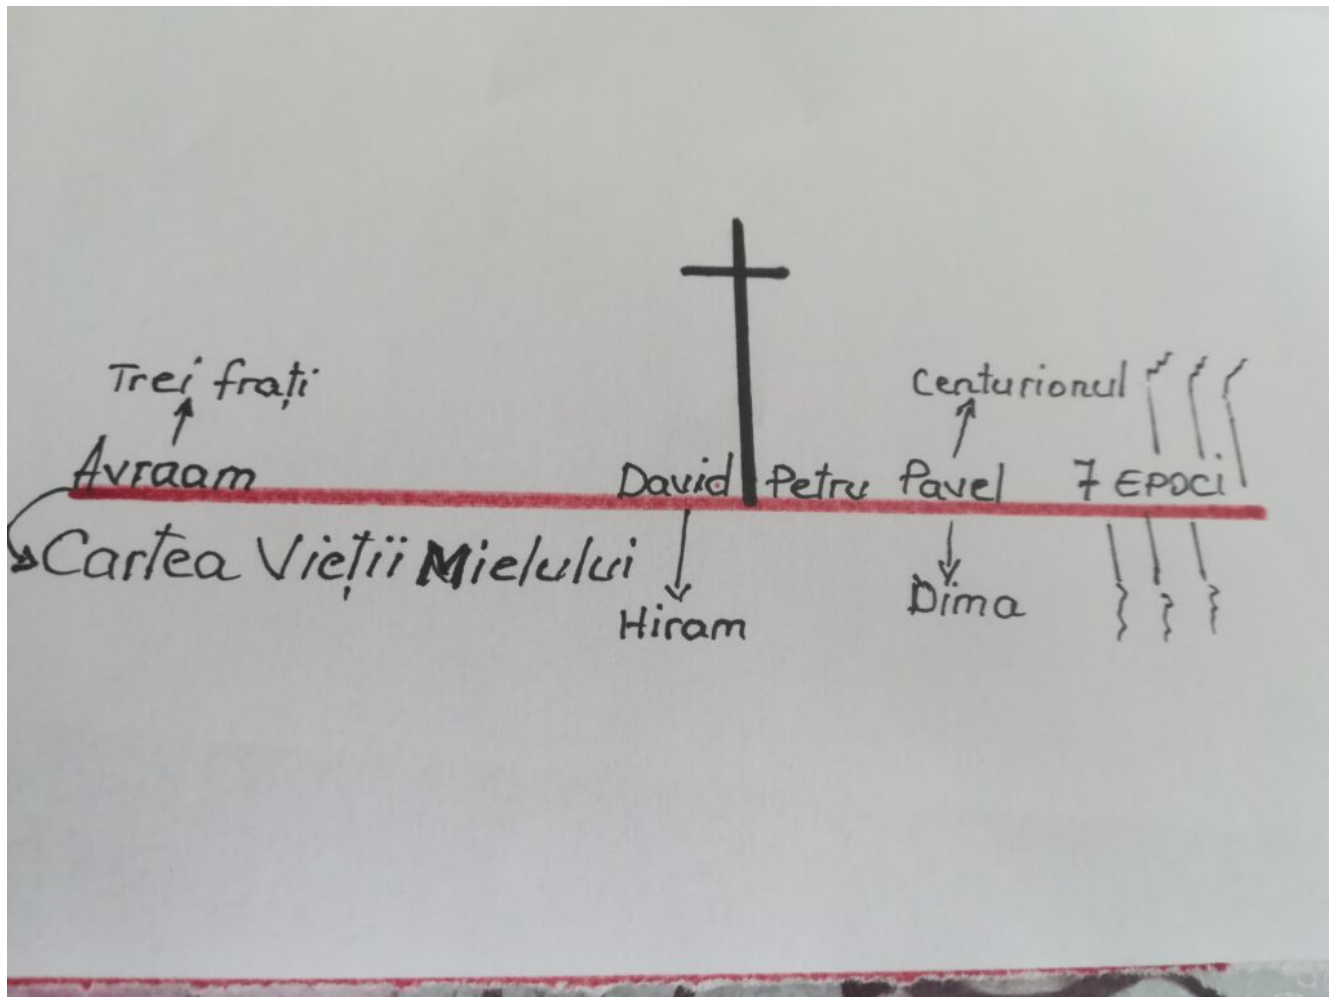 Trei frați
Centurionul
Avraam
David Petru Pavel 7 EPOCI
Cartea Vieții Mielului
Hiram
Dima